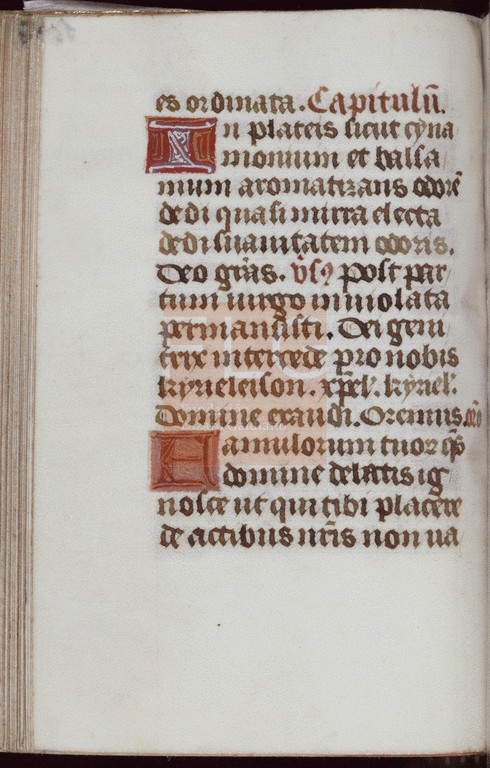 es ordinata. Capitulū.
In plateis sicut cyna
momum et balsa
mum aromatizans odorē
dedi quasi mirra electa
dedi suavitatem odoris.
Deo grās. vs̄ Post par
tum virgo inviolata
permansisti. Dei geni
trix intercede pro nobis
kyrieleison. xp̄el'. kyriel'.
Domine exaudi. Oremus.
Famulorum tuor qs̄
domine delictis ig
nosce ut qui tibi placere
de actibus nr̄is non va